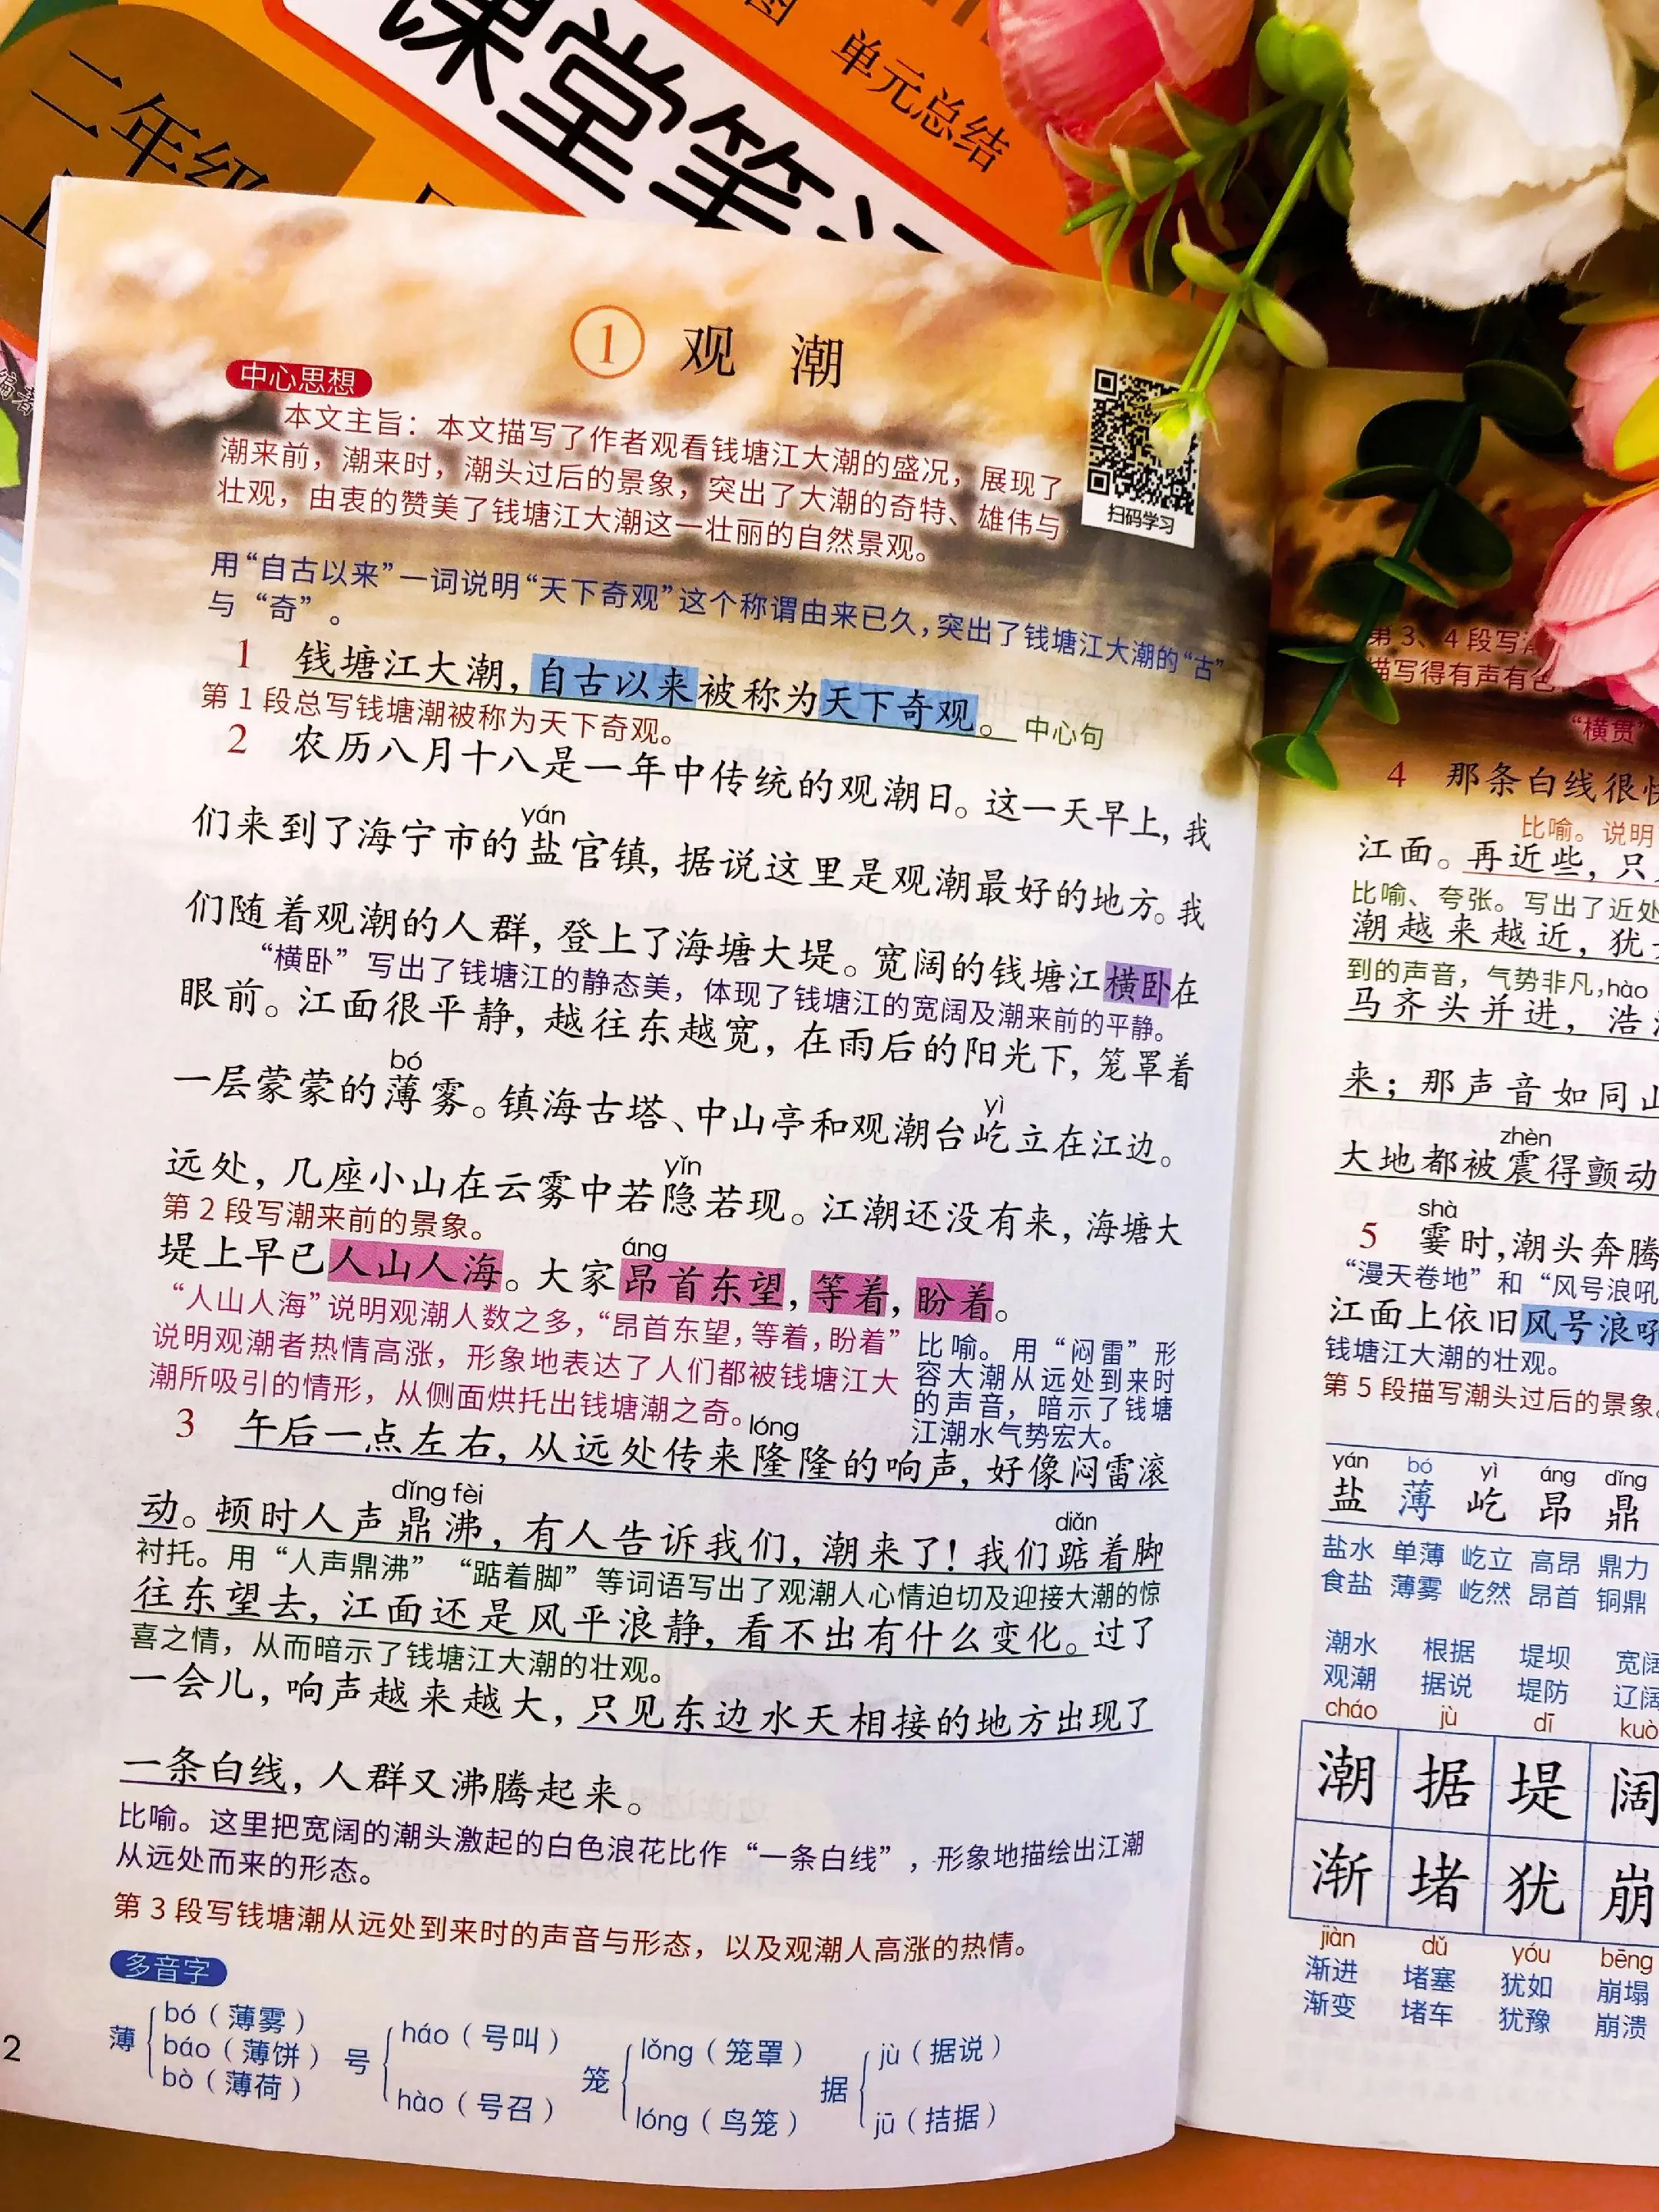 课堂笔记
单元总结
二年级
上
① 观 潮
中心思想
本文主旨：本文描写了作者观看钱塘江大潮的盛况，展现了
潮来前，潮来时，潮头过后的景象，突出了大潮的奇特、雄伟与
壮观，由衷的赞美了钱塘江大潮这一壮丽的自然景观。
扫码学习
用“自古以来”一词说明“天下奇观”这个称谓由来已久，突出了钱塘江大潮的“古”
与“奇”。
1 钱塘江大潮，自古以来被称为天下奇观。 中心句
第1段总写钱塘潮被称为天下奇观。
2 农历八月十八是一年中传统的观潮日。这一天早上，我
yán
们来到了海宁市的盐官镇，据说这里是观潮最好的地方。我
们随着观潮的人群，登上了海塘大堤。宽阔的钱塘江横卧在
“横卧”写出了钱塘江的静态美，体现了钱塘江的宽阔及潮来前的平静。
眼前。江面很平静，越往东越宽，在雨后的阳光下，笼罩着
bó yì
一层蒙蒙的薄雾。镇海古塔、中山亭和观潮台屹立在江边。
yǐn
远处，几座小山在云雾中若隐若现。江潮还没有来，海塘大
第2段写潮来前的景象。
áng
堤上早已人山人海。大家昂首东望，等着，盼着。
“人山人海”说明观潮人数之多，“昂首东望，等着，盼着”
说明观潮者热情高涨，形象地表达了人们都被钱塘江大
潮所吸引的情形，从侧面烘托出钱塘潮之奇。
比喻。用“闷雷”形
容大潮从远处到来时
的声音，暗示了钱塘
江潮水气势宏大。
lóng
3 午后一点左右，从远处传来隆隆的响声，好像闷雷滚
dǐng fèi diǎn
动。顿时人声鼎沸，有人告诉我们，潮来了！我们踮着脚
衬托。用“人声鼎沸”“踮着脚”等词语写出了观潮人心情迫切及迎接大潮的惊
往东望去，江面还是风平浪静，看不出有什么变化。过了
喜之情，从而暗示了钱塘江大潮的壮观。
一会儿，响声越来越大，只见东边水天相接的地方出现了
一条白线，人群又沸腾起来。
比喻。这里把宽阔的潮头激起的白色浪花比作“一条白线”，形象地描绘出江潮
从远处而来的形态。
第3段写钱塘潮从远处到来时的声音与形态，以及观潮人高涨的热情。
多音字
薄 bó（薄雾） báo（薄饼） bò（薄荷）
号 háo（号叫） hào（号召）
笼 lǒng（笼罩） lóng（鸟笼）
据 jù（据说） jū（拮据）
2
第3、4段写
描写得有声有色
“横贯”
4 那条白线很快
比喻。说明
江面。再近些，只
比喻、夸张。写出了近处
潮越来越近，犹
到的声音，气势非凡， hào
马齐头并进，浩
来；那声音如同山
zhèn
大地都被震得颤动
shà
5 霎时，潮头奔腾
“漫天卷地”和“风号浪吼
江面上依旧风号浪吼
钱塘江大潮的壮观。
第5段描写潮头过后的景象。
yán bó yì áng dǐng
盐 薄 屹 昂 鼎
盐水 单薄 屹立 高昂 鼎力
食盐 薄雾 屹然 昂首 铜鼎
潮水 根据 堤坝 宽阔
观潮 据说 堤防 辽阔
cháo jù dī kuò
潮 据 堤 阔
渐 堵 犹 崩
jiàn dǔ yóu bēng
渐进 堵塞 犹如 崩塌
渐变 堵车 犹豫 崩溃